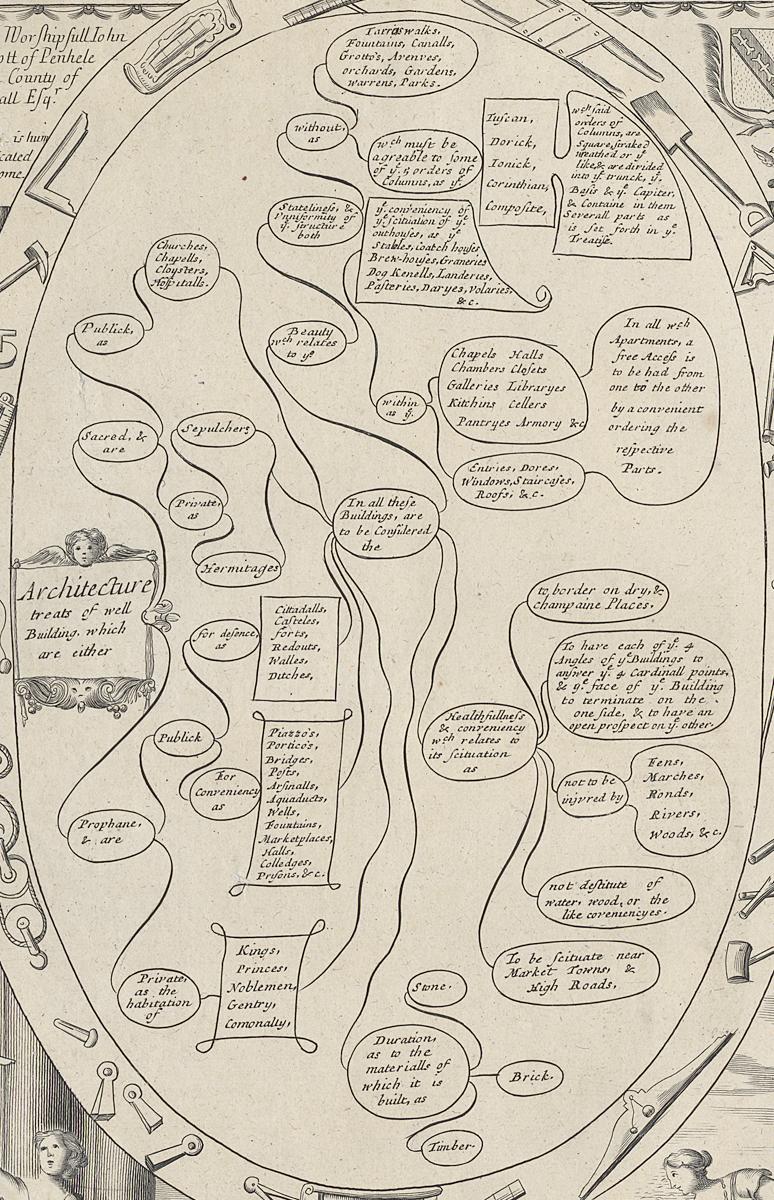 Worshipfull Iohn
ott of Penhele
County of
all Esqr
is hum
cated
ome.
Tarraswalks,
Fountains, Canalls,
Grotto's, Avenves,
orchards, Gardens,
warrens, Parks.
without,
as
wch must be
agreable to some
of ye. 5 orders of
Columns, as ye.
Tuscan,
Dorick,
Ionick,
Corinthian,
Composite,
wch said
orders of
Columns, are
Square, straked
wreathed or ye
like, & are divided
into ye. trunck, ye.
Basis & ye. Capiter,
& Containe in them
Severall parts as
is set forth in ye.
Treatise.
Stateliness, &
Vnniformity of
ye. structure
both
ye. conveniency of
ye. scituiation of ye.
outhouses, as ye.
Stables, coatch houses
Brew-houses, Graneries
Dog Kenells, Landeries,
Pasteries, Daryes, Volaries,
&c.
Churches,
Chapells,
Cloysters,
Hospitalls.
Publick,
as
Beauty
wch relates
to ye
within
as ye.
Chapels Halls
Chambers Closets
Galleries Libraryes
Kitchins Cellers
Pantryes Armory &c
In all wch
Apartments, a
free Access is
to be had from
one to the other
by a convenient
ordering the
respective
Parts.
Entries, Dores,
Windows, Staircases,
Roofs, &c.
Sacred, &
are
Sepulchers
Private,
as
Hermitages
In all these
Buildings, are
to be Considered
the
Architecture
treats of well
Building, which
are either
for defence,
as
Cittadalls,
Casteles,
forts,
Redouts,
Walles,
Ditches,
Publick
For
Conveniency
as
Piazzo's,
Portico's,
Bridges,
Posts,
Arsinalls,
Aquaducts,
Wells,
Fountains,
Marketplaces,
Halls,
Colledges,
Prysons, &c.
Prophane,
& are
Private,
as the
habitation
of
Kings,
Princes,
Noblemen,
Gentry,
Comonalty,
Healthfullness
& conveniency
wch relates to
its scituation
as
to border on dry, &
champaine Places.
To have each of ye. 4
Angles of ye Buildings to
answer ye. 4 Cardinall points,
& ye. face of ye. Building
to terminate on the
one side, & to have an
open prospect on ye. other.
not to be
injvred by
Fens,
Marches,
Ronds,
Rivers,
Woods, &c.
not destitute of
water, wood, or the
like coveniencyes.
To be scituate near
Market Towns, &
High Roads,
Stone.
Duration,
as to the
materialls of
which it is
built, as
Brick.
Timber.